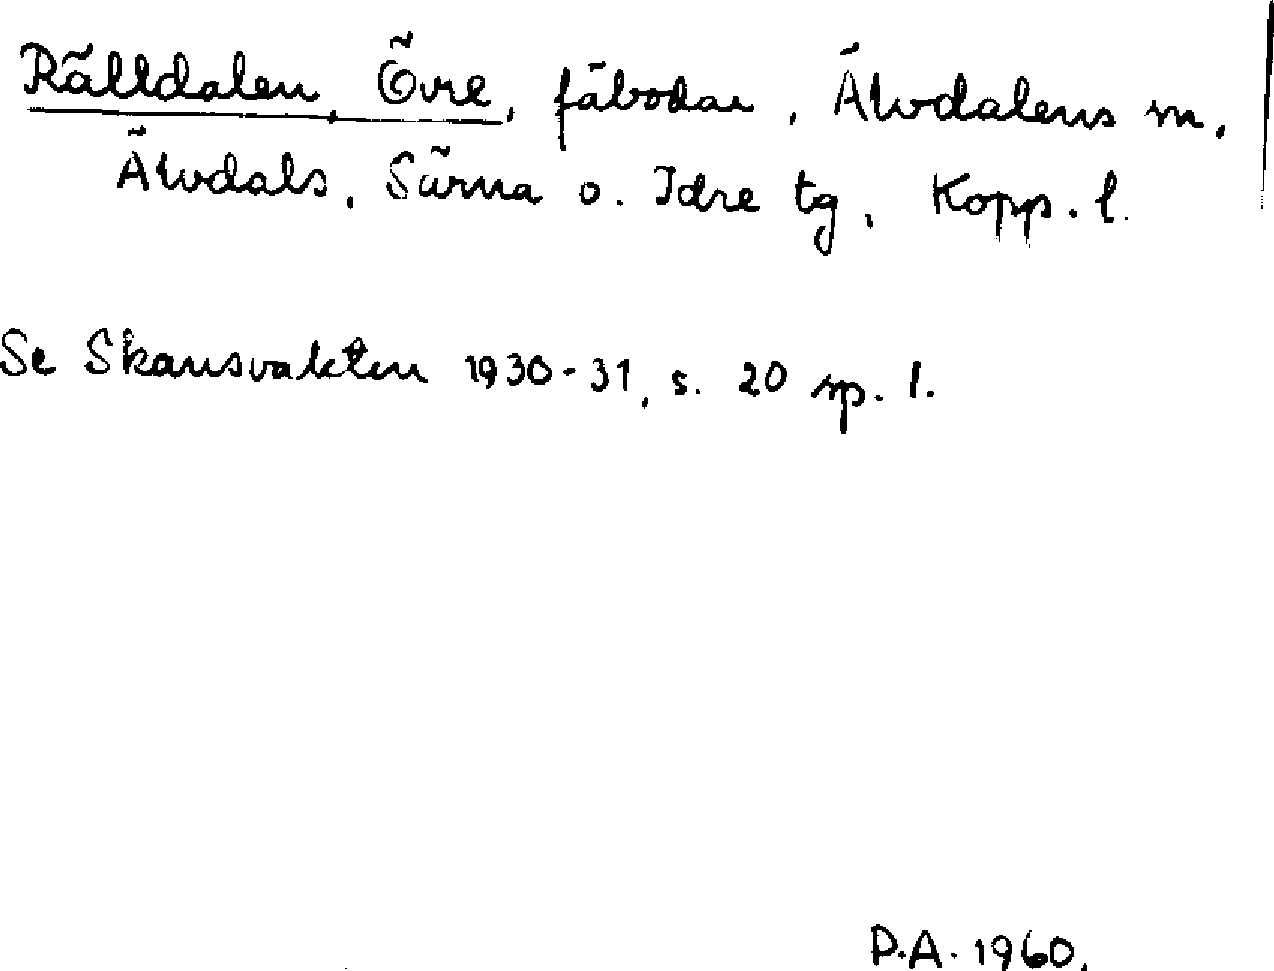 Rälldalen, Övre, fäbodar, Älvdalens sn,
Älvdals, Särna o. Idre tg, Kopp. l.
Se Skansvakten 1930-31, s. 20 sp. 1.
P.A. 1960.